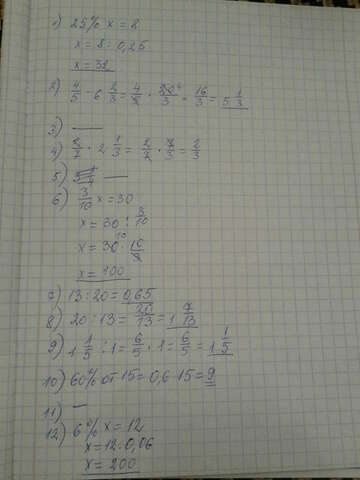 1) 25% x = 8
x = 8 : 0,25
x = 32
2) 4/5 · 6 2/3 = 4/5 · 20⁴/3 = 16/3 = 5 1/3
3) —
4) 2/7 · 2 1/3 = 2/7 · 7/3 = 2/3
5) —
6) 3/10 x = 30
x = 30 : 3/10
x = 30¹⁰ · 10/3
x = 100
7) 13 : 20 = 0,65
8) 20 : 13 = 20/13 = 1 7/13
9) 1 1/5 : 1 = 6/5 · 1 = 6/5 = 1 1/5
10) 60% от 15 = 0,6 · 15 = 9
11) —
12) 6% x = 12
x = 12 : 0,06
x = 200